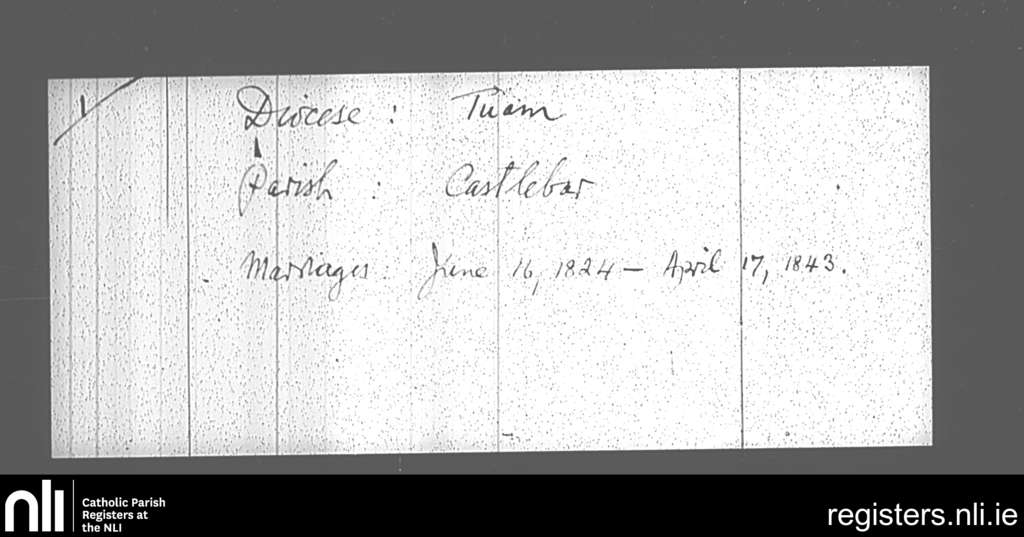 Diocese : Tuam
Parish : Castlebar
Marriages : June 16, 1824 – April 17, 1843.
nli
Catholic Parish
Registers at
the NLI
registers.nli.ie